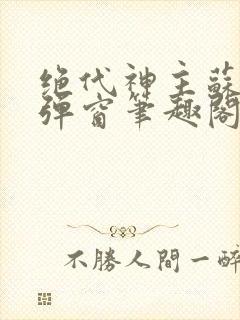 绝代神主蘇
弹窗筆趣閣
不勝人間一醉